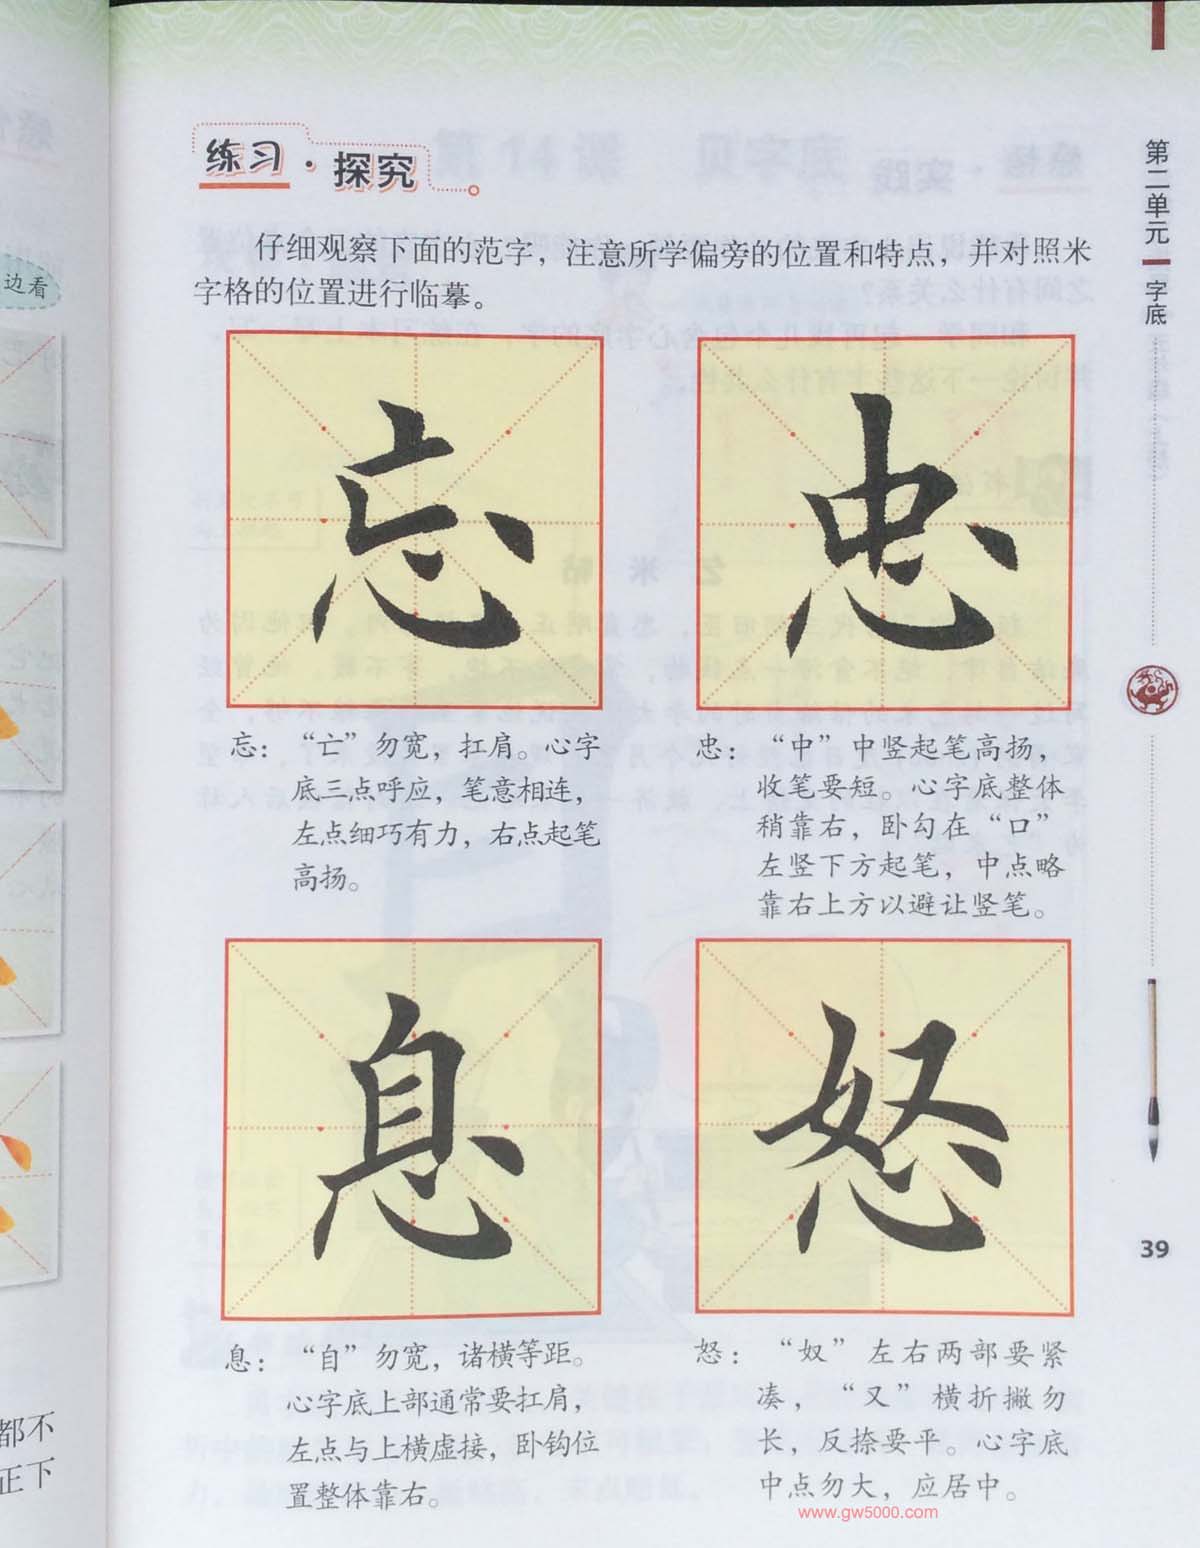 练习·探究
仔细观察下面的范字，注意所学偏旁的位置和特点，并对照米
字格的位置进行临摹。
忘
忠
忘：“亡”勿宽，扛肩。心字
底三点呼应，笔意相连，
左点细巧有力，右点起笔
高扬。
忠：“中”中竖起笔高扬，
收笔要短。心字底整体
稍靠右，卧勾在“口”
左竖下方起笔，中点略
靠右上方以避让竖笔。
息
怒
息：“自”勿宽，诸横等距。
心字底上部通常要扛肩，
左点与上横虚接，卧钩位
置整体靠右。
怒：“奴”左右两部要紧
凑，“又”横折撇勿
长，反捺要平。心字底
中点勿大，应居中。
第二单元 字底
39
www.gw5000.com
边看
都不
正下